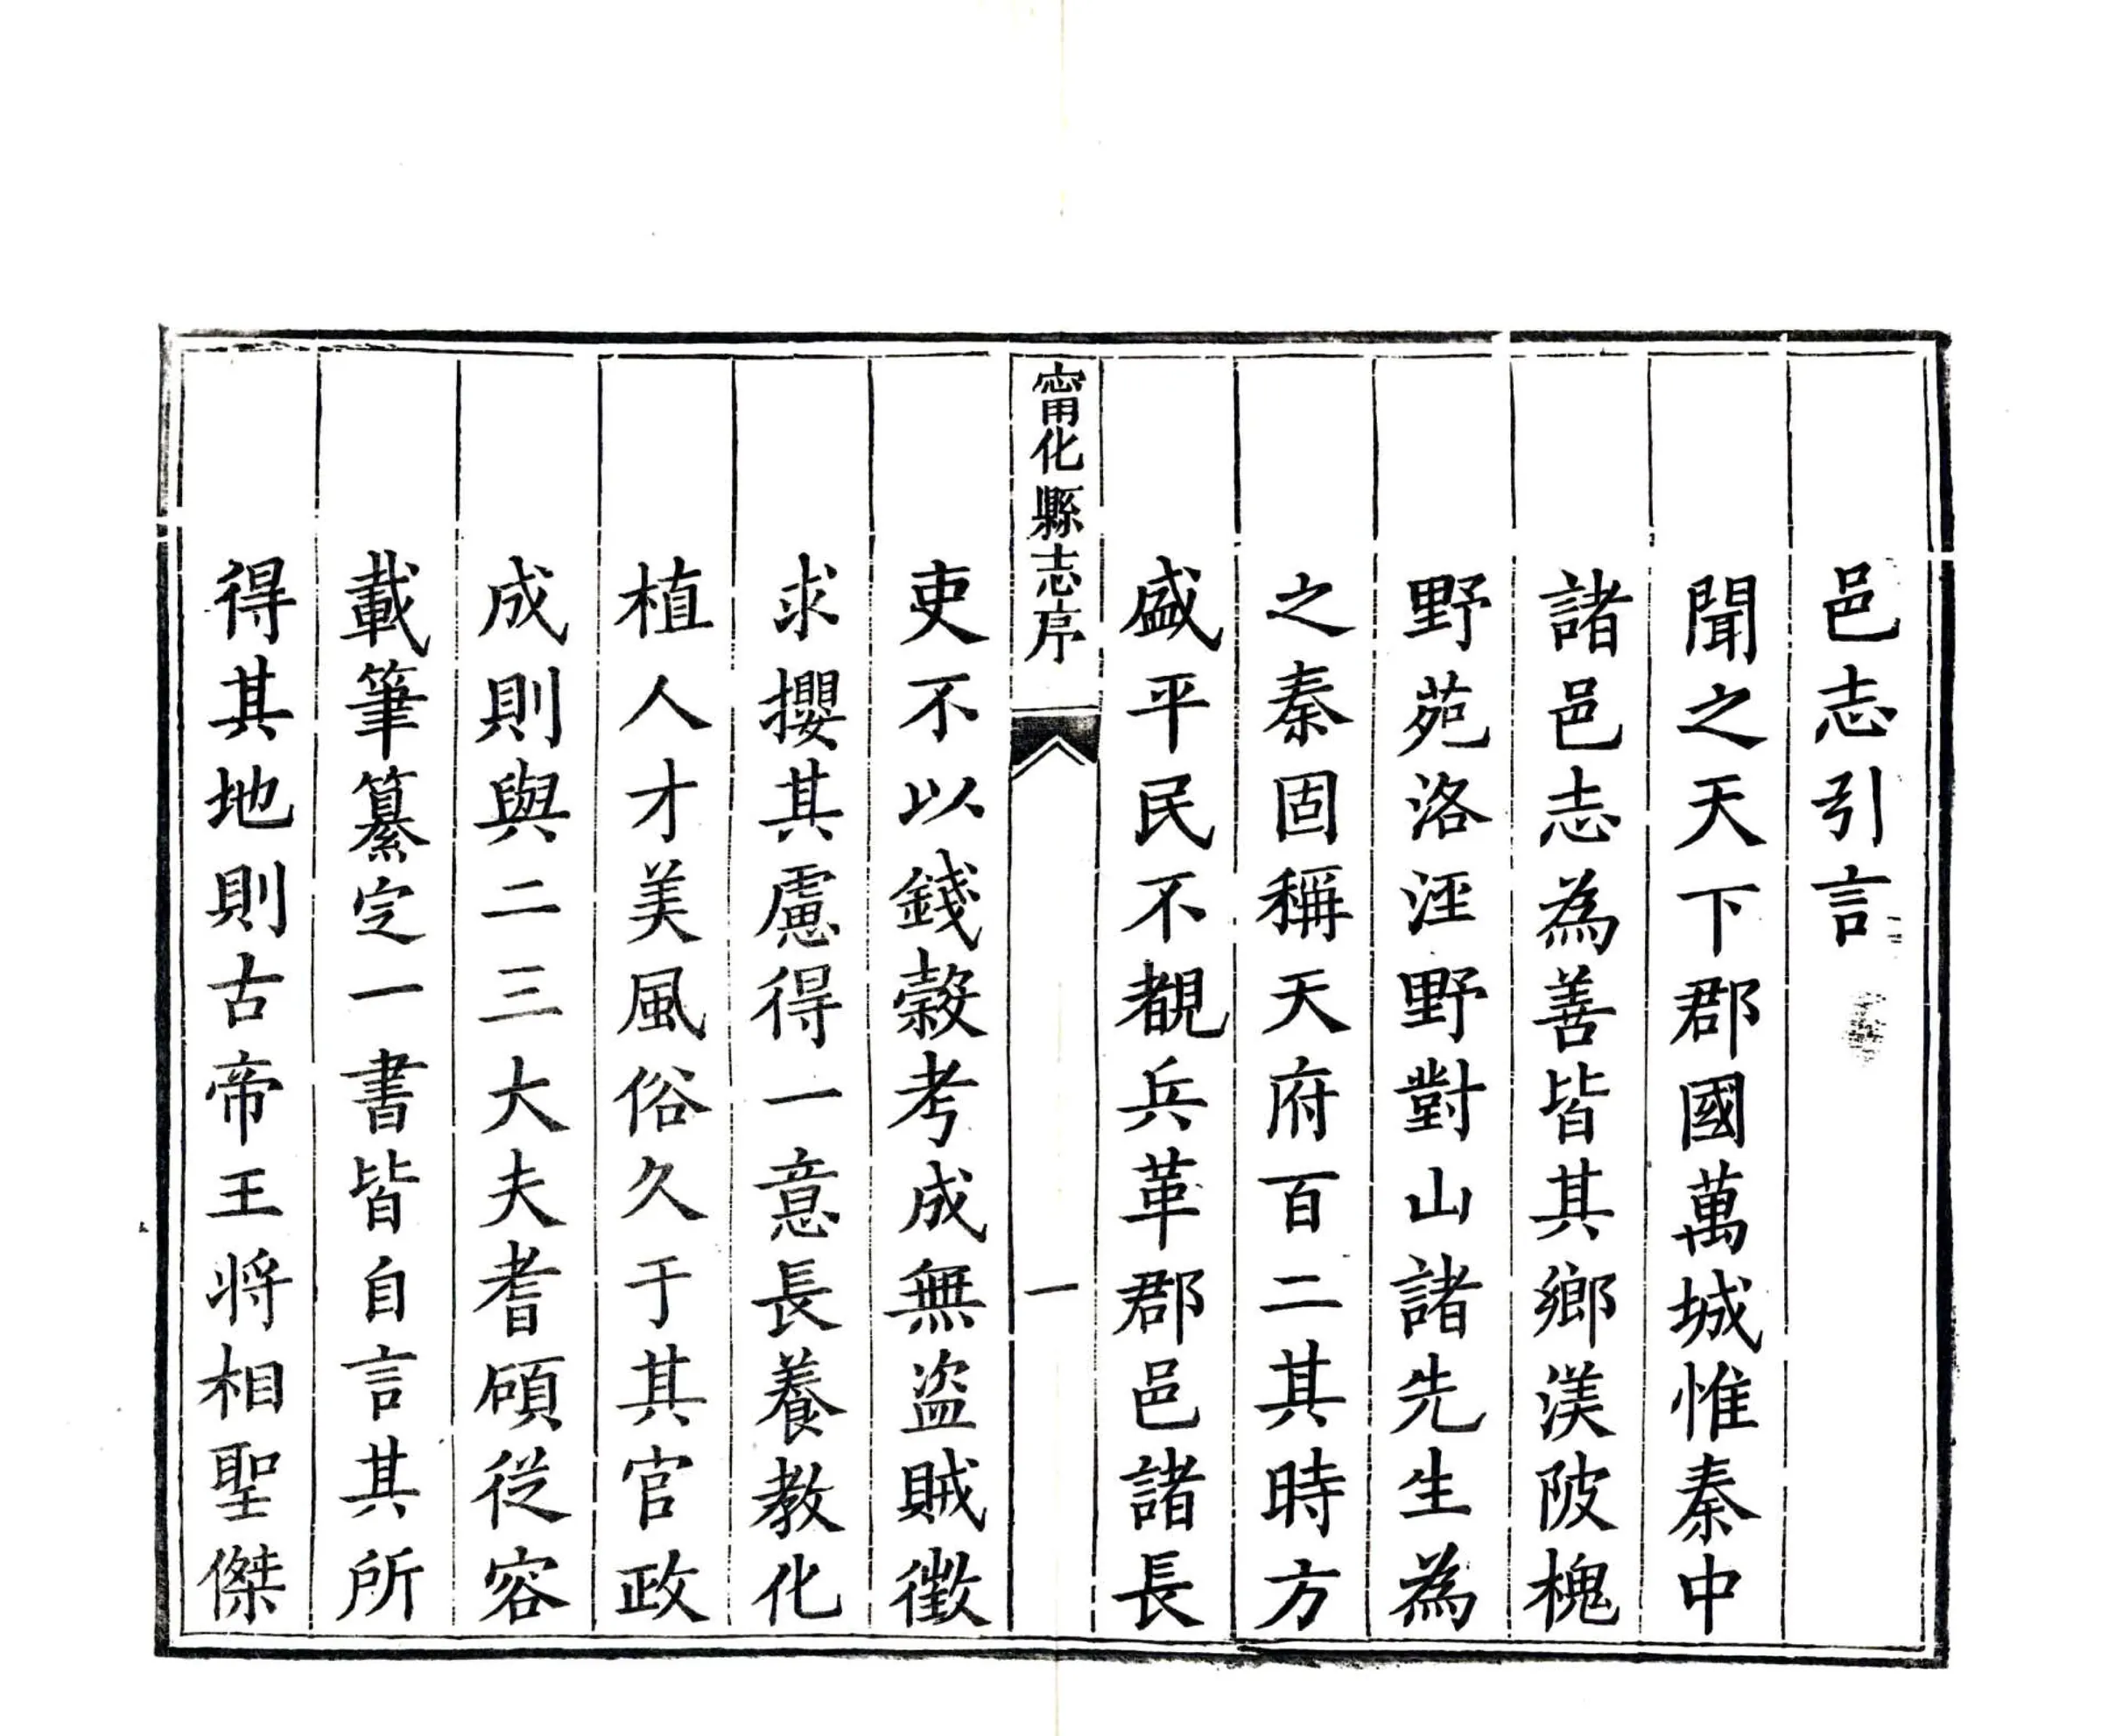 邑志引言
聞之天下郡國萬城惟秦中
諸邑志為善皆其鄉渼陂槐
野苑洛涇野對山諸先生為
之秦固稱天府百二其時方
盛平民不覩兵革郡邑諸長
甯化縣志序
一
吏不以錢穀考成無盜賊徵
求攖其慮得一意長養教化
植人才美風俗久于其官政
成則與二三大夫耆碩從容
載筆纂定一書皆自言其所
得其地則古帝王將相聖傑